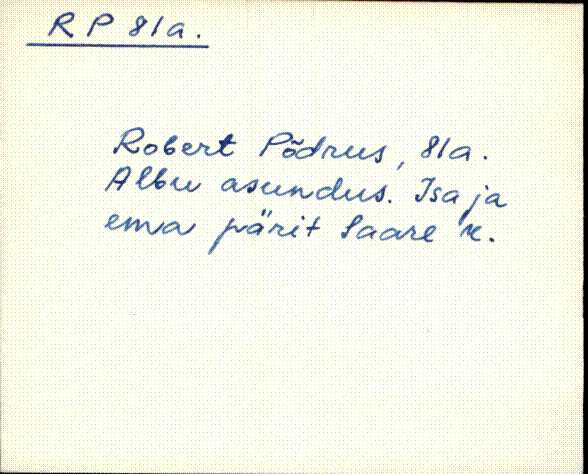 R P 81a.
Robert Põdrus, 81a.
Albu asundus. Isa ja
ema pärit Saare k.